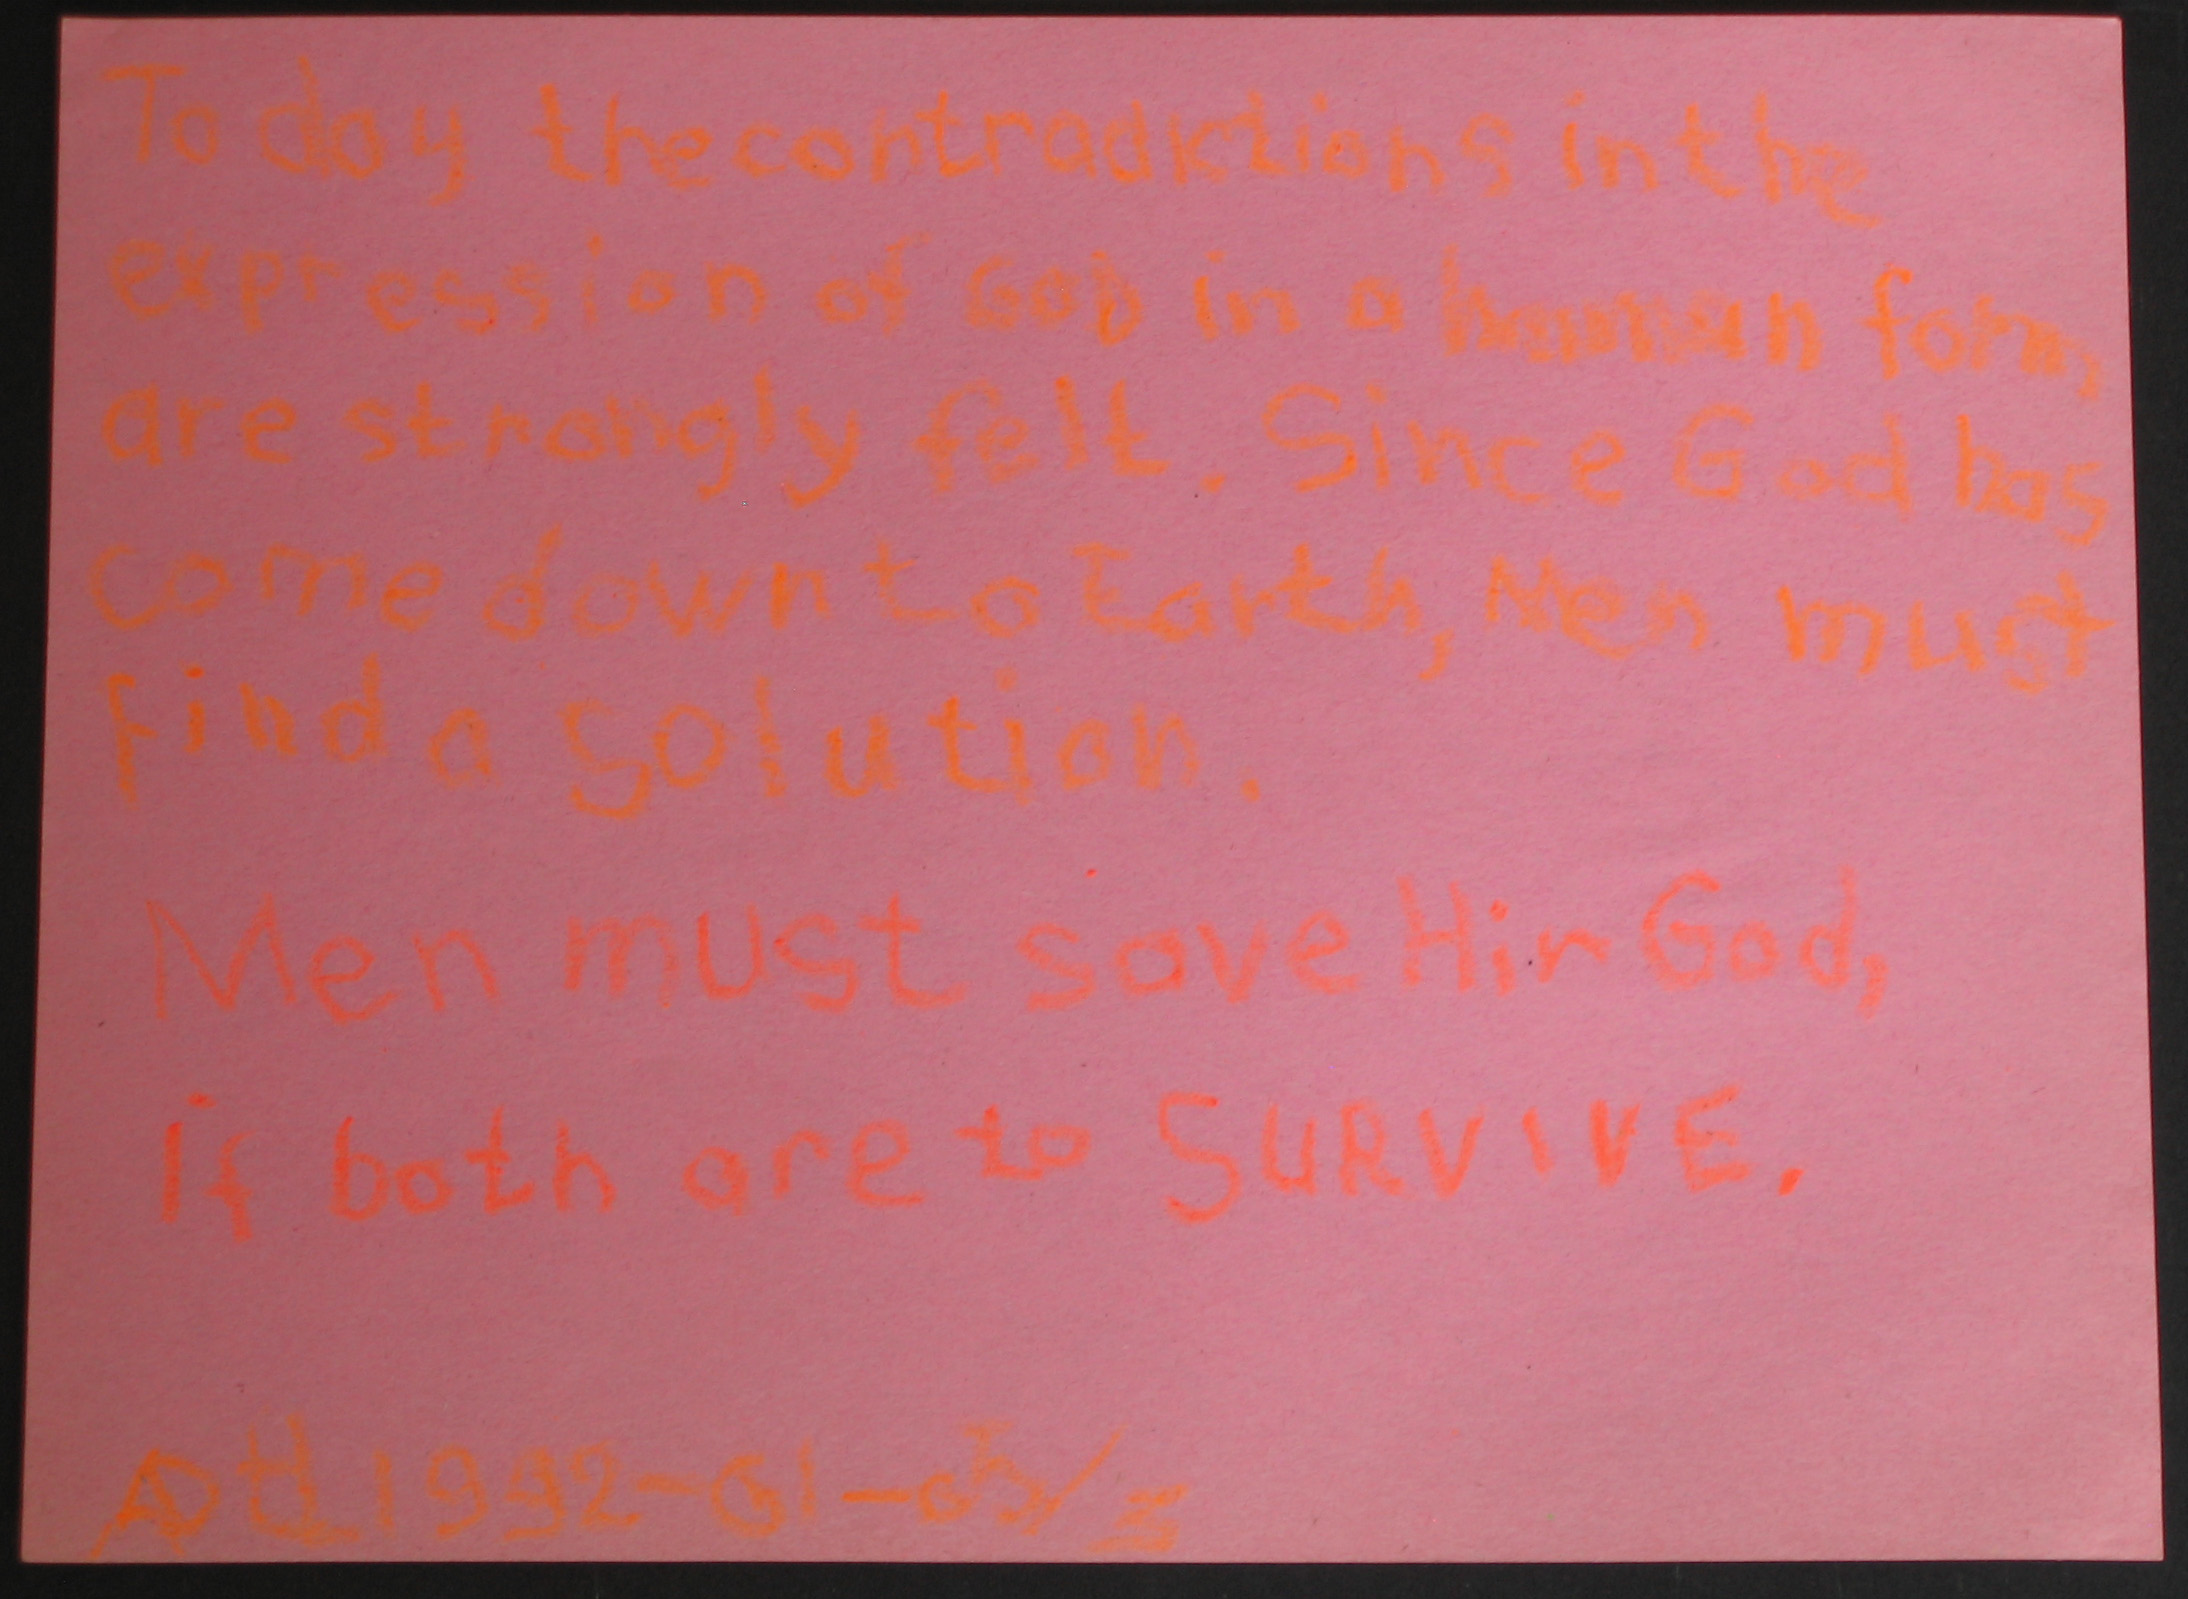 Today the contradictions in the
expression of God in a human form,
are strongly felt. Since God has
come down to Earth, Men must
find a solution.
Men must save Him God,
if both are to SURVIVE.
1992-01-05/3